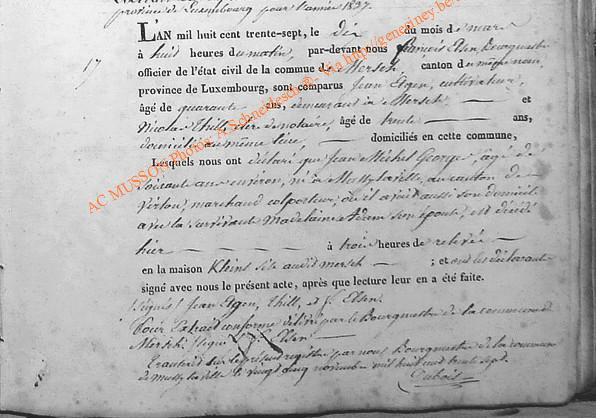 province de Luxembourg pour l'année 1837.
17
L'AN mil huit cent trente-sept, le dix du mois de mars
à huit heures du matin, par-devant nous François Elsen Bourgmestre
officier de l'état civil de la commune de Mersch, canton du même nom,
province de Luxembourg, sont comparus Jean Etgen, cultivateur,
âgé de quarante ans, demeurant à Mersch et
Nicolas Thill, clerc de notaire, âgé de trente ans,
domicilié au même lieu, domiciliés en cette commune,
Lesquels nous ont déclaré que Jean Michel George, âgé de
soixante ans environ, né à Mussy-la-ville, au canton de
Virton, marchand colporteur, où il avait aussi son domicile
avec la survivante Madelaine Adam son épouse, est décédé
hier à trois heures de relevée
en la maison Kleins sise audit Mersch ; et ont les déclarants
signé avec nous le présent acte, après que lecture leur en a été faite.
(Signé) Jean Etgen, Thill, et F. Elsen.
Pour Extrait conforme délivré par le Bourgmestre de la commune de
Mersch (signé) F. Elsen
Transcrit sur le présent registre par nous Bourgmestre de la commune
de Mussy la ville le vingt cinq novembre mil huit cent trente sept.
Dubois
AC MUSSON Photos: A.Schneidesch®- Via http://geneliney.be/